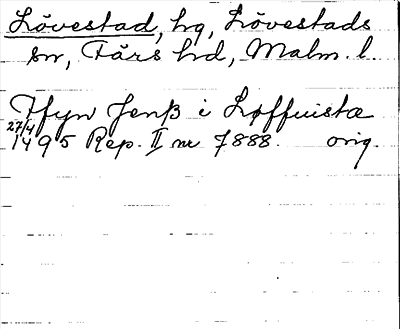 Lövestad, hg, Lövestads
sn, Färs hd, Malm. l.
Tfyn Jenß i Løffuistæ
27/4
1495 Rep. II nr 7888. orig.